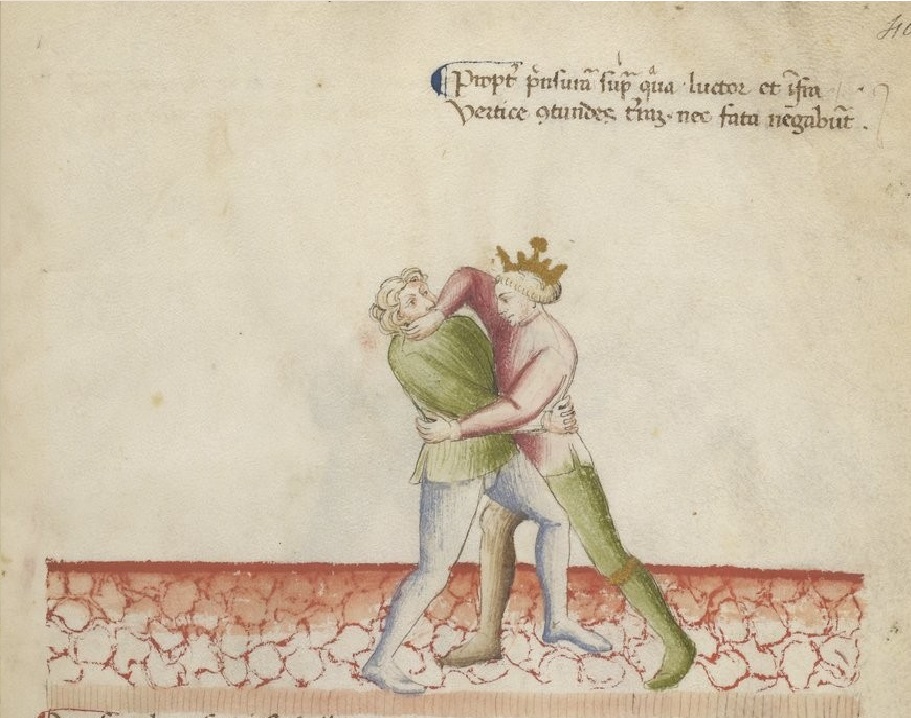 Propt̄ p̄nsurā sup̄ qua luctor et īfra
Vertice ꝯtundes t̄raꝫ nec fata nēgabūt .